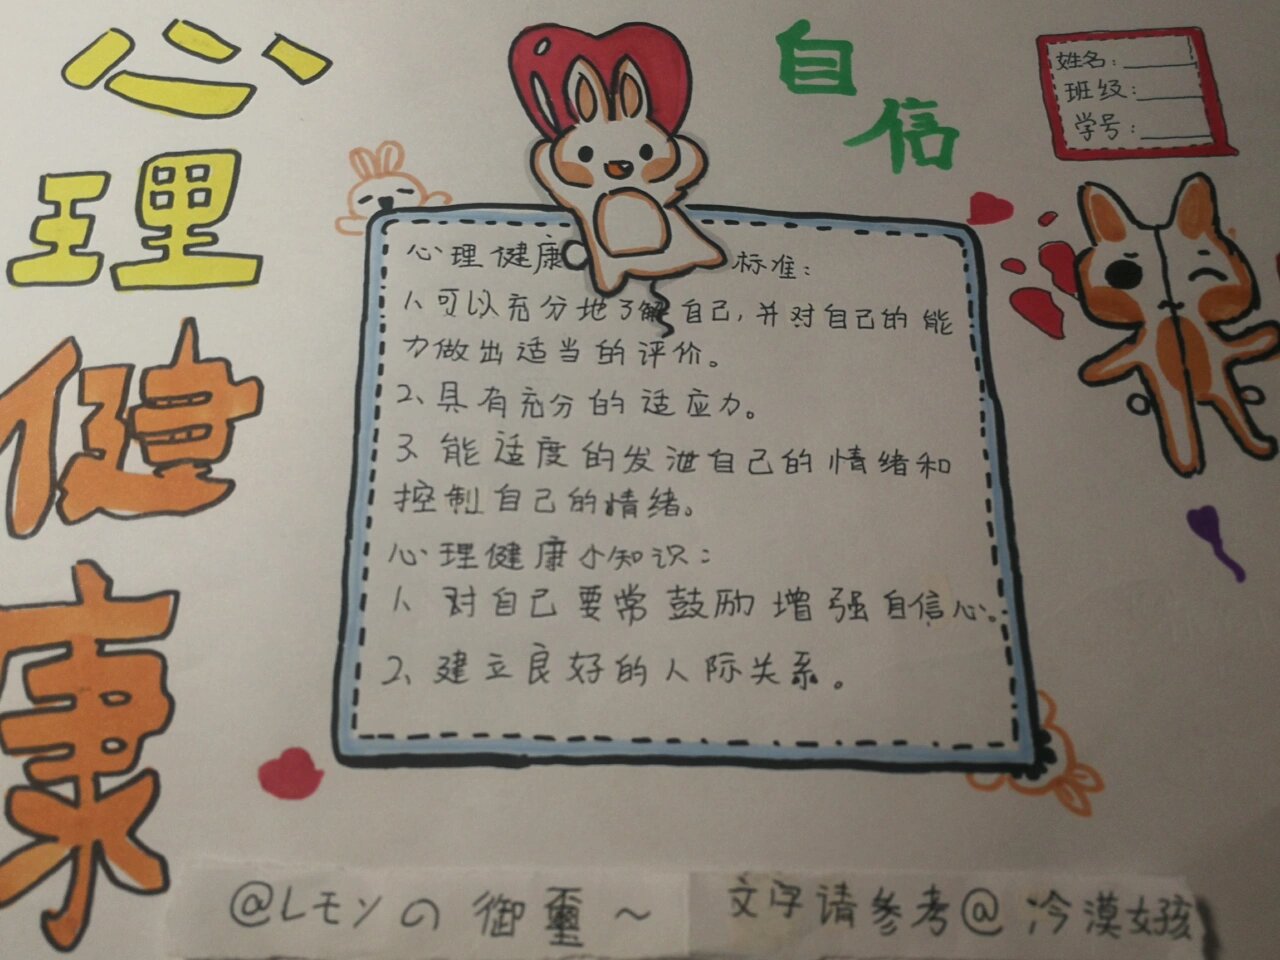 心理健康
自信
姓名:
班级:
学号:
心理健康 标准:
1、可以充分地了解自己,并对自己的能
力做出适当的评价。
2、具有充分的适应力。
3、能适度的发泄自己的情绪和
控制自己的情绪。
心理健康小知识:
1、对自己要常鼓励增强自信心。
2、建立良好的人际关系。
@レモンの御玺~ 文字请参考@冷漠女孩